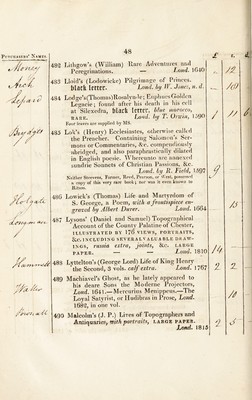 48
PURCHASERS' NAMES
£ s. d.
Money 482 Lithgow's (William) Rare Adventures and
Peregrinations. — Lond. 1640 12
483 Lloid's (Lodowicke) Pilgrimage of Princes.
black letter. Lond. by W. Jones, n. d. 10
484 Lodge's (Thomas) Rosalynde; Euphues Golden
Legacie; found after his death in his cell
at Silexedra, black letter, blue morocco,
RARE. Lond. by T. Orwin, 1590 1 11 6
Four leaves are supplied by MS.
Brydges 485 Lok's (Henry) Ecclesiastes, otherwise called
the Preacher. Containing Salomon's Ser-
mons or Commentaries, &c. compendiously
abridged, and also paraphrastically dilated
in English poesie. Whereunto are annexed
sundrie Sonnets of Christian Passions, &c.
Lond. by R. Field, 1597 9
Neither Steevens, Farmer, Reed, Pearson, or West, possessed
a copy of this very rare book; nor was it even known to
Ritson.
Holgate 486 Lowick's (Thomas) Life and Martyrdom of
S. George, a Poem, with a frontispiece en-
graved by Albert Durer. Lond. 1664 15
Longman 487 Lysons' (Daniel and Samuel) Topographical
Account of the County Palatine of Chester,
ILLUSTRATED BY 176 VIEWS, PORTRAITS,
&c. INCLUDING SEVERAL VALUABLE DRAW-
INGS, russia extra, joints, &c. LARGE
PAPER. — Lond. 1810 14
488 Lyttelton's (George Lord) Life of King Henry
the Second, 3 vols. calf extra. Lond. 1767 2 2
489 Machiavel's Ghost, as he lately appeared to
his deare Sons the Moderne Projectors,
Lond. 1641.—Mercurius Menippeus.—The
Loyal Satyrist, or Hudibras in Prose, Lond.
1682, in one vol. 18
490 Malcolm's (J. P.) Lives of Topographers and
Antiquaries, with portraits, LARGE PAPER.
Lond. 1815 2 5